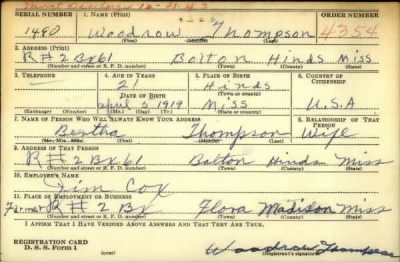 12-31-43
SERIAL NUMBER 1. NAME (Print) ORDER NUMBER
1490 Woodrow Thompson 4354
(First) (Middle) (Last)
2. ADDRESS (Print)
R#2 Bx61 Bolton Hinds Miss
(Number and street or R. F. D. number) (Town) (County) (State)
3. TELEPHONE 4. AGE IN YEARS 5. PLACE OF BIRTH 6. COUNTRY OF CITIZENSHIP
21 Hinds
DATE OF BIRTH (Town or county)
April 5 1919 Miss U.S.A
(Exchange) (Number) (Mo.) (Day) (Yr.) (State or country)
7. NAME OF PERSON WHO WILL ALWAYS KNOW YOUR ADDRESS 8. RELATIONSHIP OF THAT PERSON
Bertha Thompson Wife
(Mr., Mrs., Miss) (First) (Middle) (Last)
9. ADDRESS OF THAT PERSON
R#2 Bx61 Bolton Hinds Miss
(Number and street or R. F. D. number) (Town) (County) (State)
10. EMPLOYER'S NAME
Jim Cox
11. PLACE OF EMPLOYMENT OR BUSINESS
Farmer R#2 Bx Flora Madison Miss
(Number and street or R. F. D. number) (Town) (County) (State)
I AFFIRM THAT I HAVE VERIFIED ABOVE ANSWERS AND THAT THEY ARE TRUE.
REGISTRATION CARD
D. S. S. Form 1 Woodrow Thompson
(Registrant's signature)